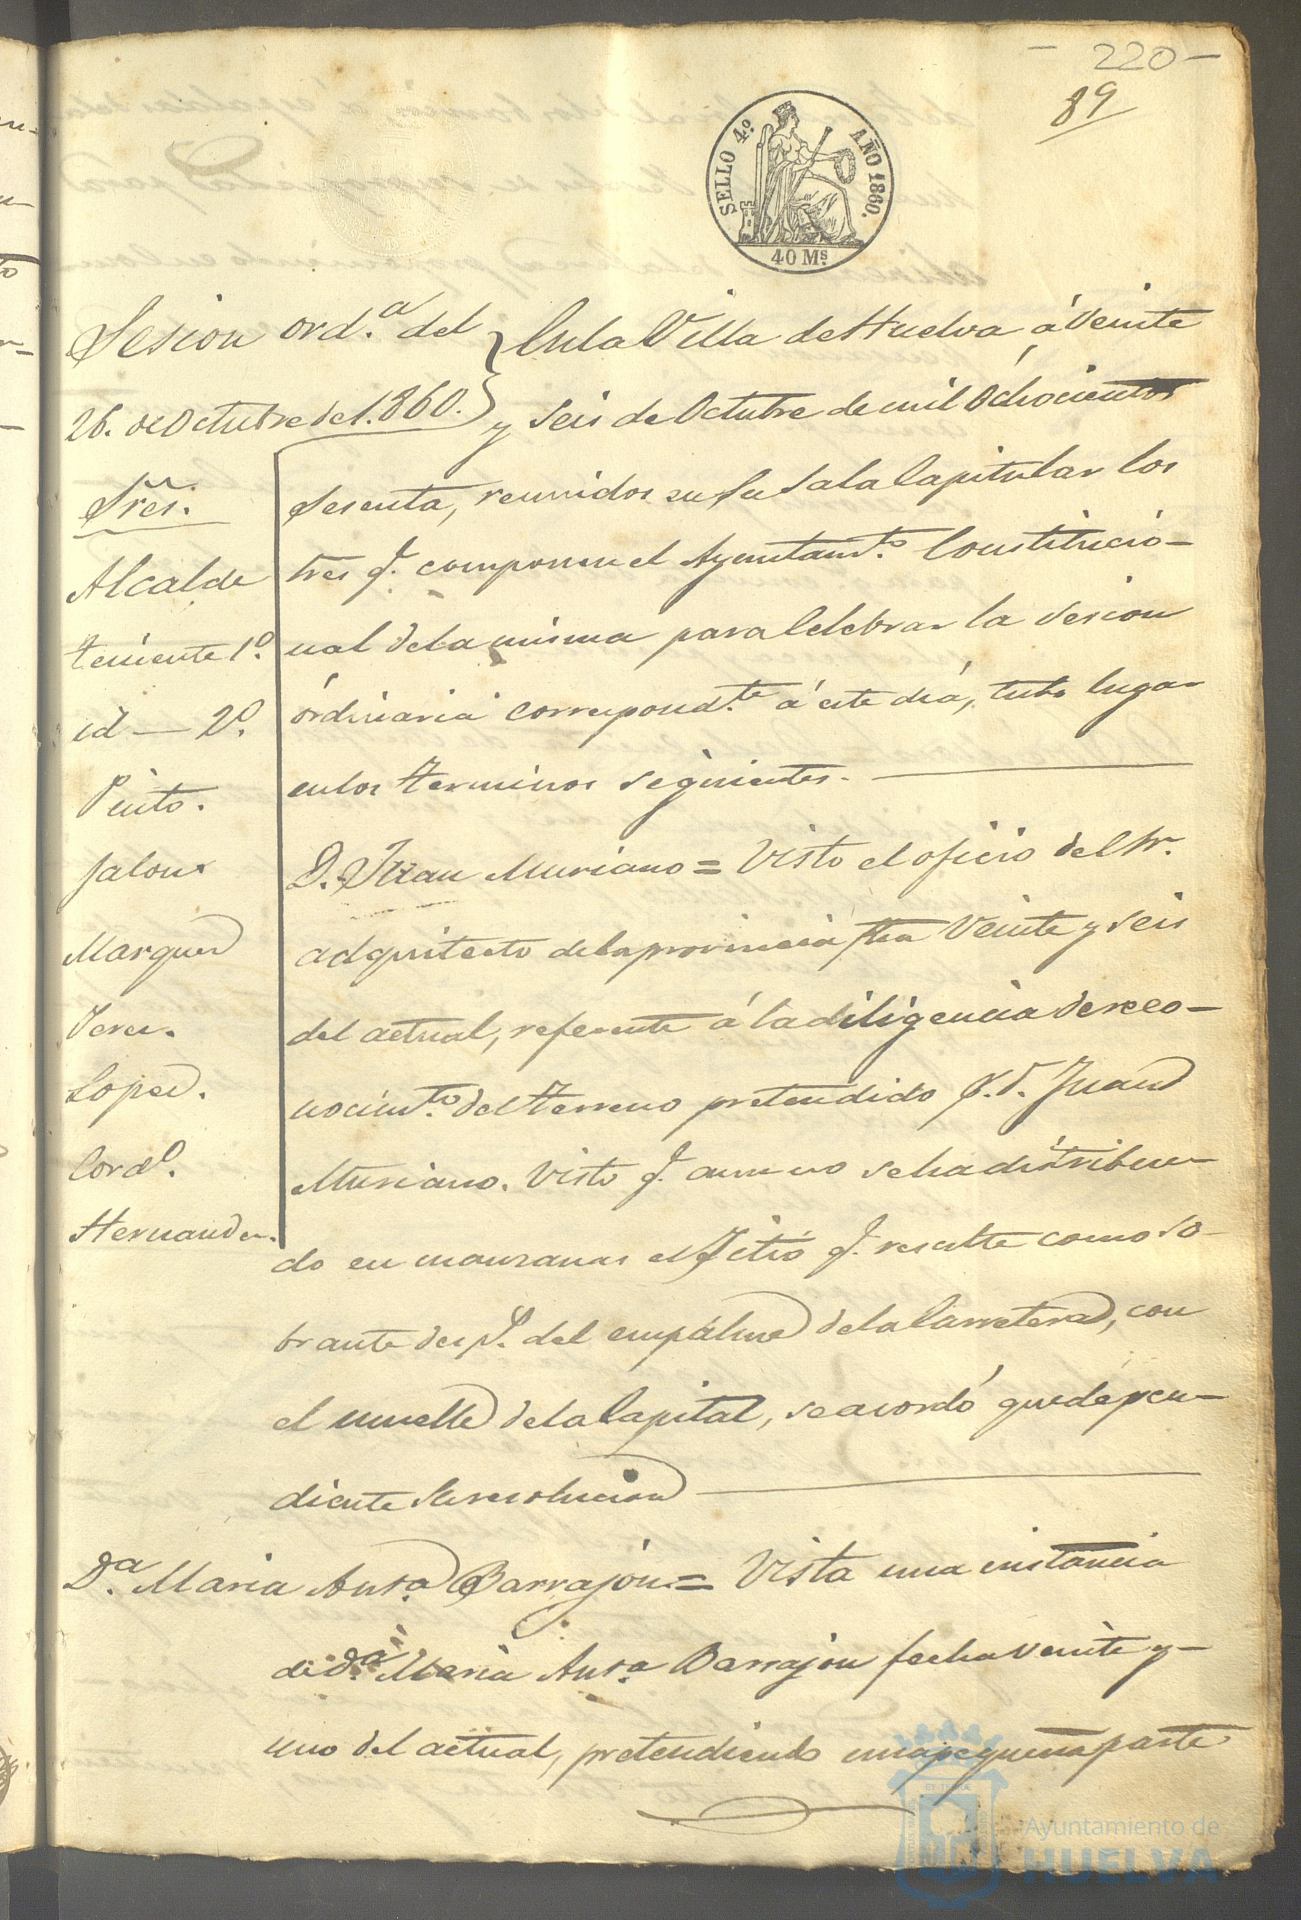 - 220 -
89
SELLO 4.º AÑO 1860.
40 M.s
Sesion ord.a del
26. de Octubre de 1.860.
Sres.
Alcalde
teniente 1.º
id — 2.º
Pinto.
Jalon.
Marquez
Perez.
Lopez.
Cord.o
Hernandez.
En la Villa de Huelva á veinte
y seis de Octubre de mil óchocientos
sesenta, reunidos en su Sala Capitular los
tres q.e componen el Ayuntam.to Constitucio-
nal de la misma para Celebrar la sesion
órdinaria correspond.te á este dia, tubo lugar
en los terminos siguientes.
D. Juan Muriano = Visto el oficio del Sr.
adquitecto de la provincia fha Veinte y seis
del actual, referente á la diligencia de reco-
nocim.to del terreno pretendido p.r D. Juan
Muriano. Visto q.e aun no se ha distribui-
do en manzanas el Sitio q.e resulte como so-
brante desp.s del empalme de la Carretera, con
el muelle de la Capital, se acordó quede pen-
diente la resolucion
D.a Maria Ant.a Barrajon = Vista una instancia
de D.a Maria Ant.a Barrajon fecha veinte y
uno del actual, pretendiendo una pequeña parte
Ayuntamiento de
HUELVA